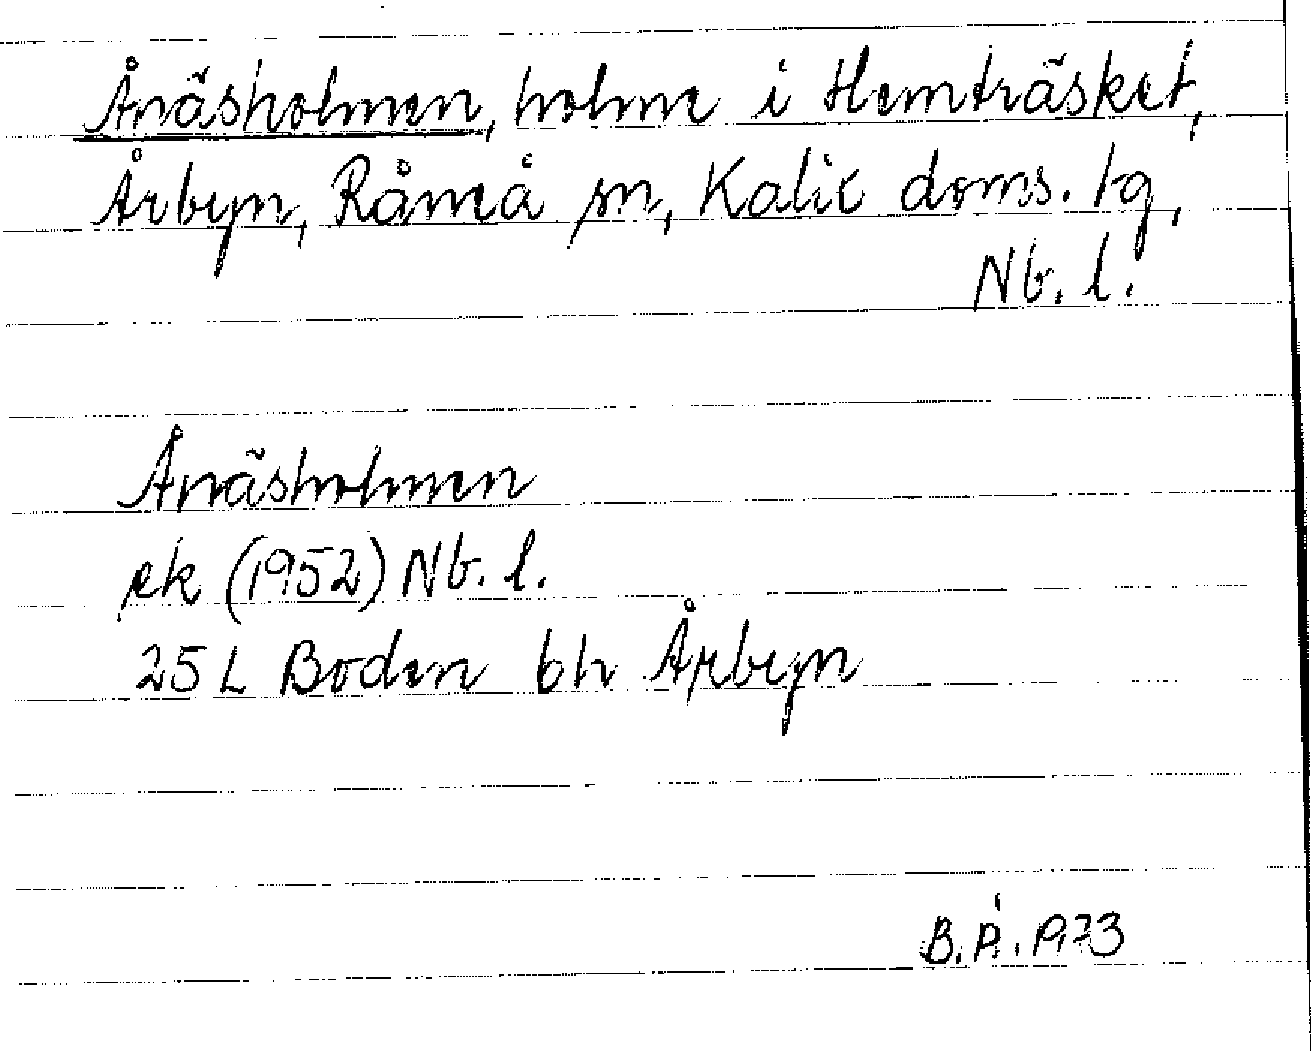 Ånäsholmen, holme i Hemträsket,
Årbyn, Råneå sn, Kalix doms. tg,
Nb. l.
Ånäsholmen
ek (1952) Nb. l.
25 L Boden 6h Årbyn
B.Å. 1973